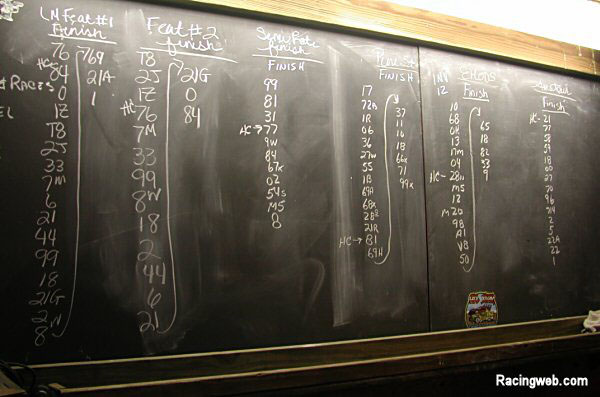 LM Feat #1
Finish
76
HC→ 84
0
1Z
T8
2J
33
7M
6
21
44
99
18
21G
2
8W
769
21A
1
# RACES
Feat #2
finish
T8
2J
1Z
HC 76
7M
33
99
8W
18
2
44
6
21
21G
0
84
finish
FINISH
99
81
31
HC→ 77
9W
84
67x
02
54s
M5
8
FINISH
17
72A
1R
06
36
27W
55
1B
69A
68x
28
21R
HC→ 81
69H
37
11
16
1B
66x
71
99x
INV
12
Finish
10
68
0H
13
17M
04
HC- 28N
M5
12
M20
98
A1
VB
50
65
18
82
33
9
Finish
HC- 21
77
58
59
18
60
27
70
96
714
2
5
22A
22
1
Racingweb.com